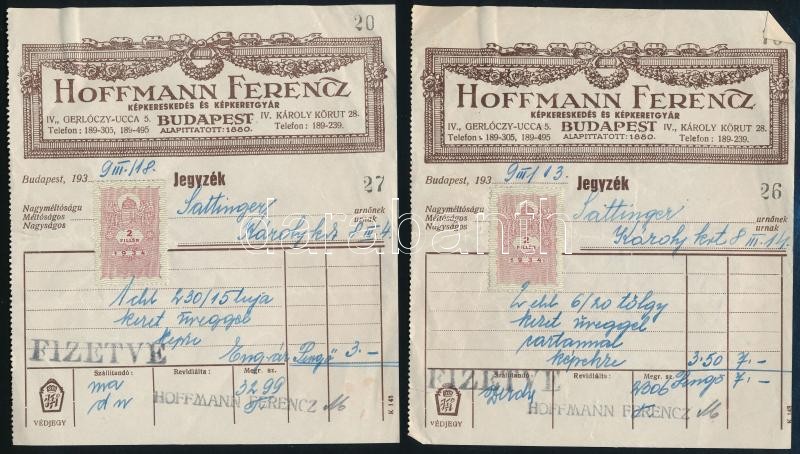 20
HOFFMANN FERENCZ
KÉPKERESKEDÉS ÉS KÉPKERETGYÁR
IV., GERLÓCZY-UCCA 5. BUDAPEST IV. KÁROLY KÖRUT 28.
Telefon: 189-305, 189-495 ALAPITTATOTT: 1880. Telefon: 189-239.
Budapest, 193 9 III/18. Jegyzék 27
Nagyméltóságu
Méltóságos
Nagyságos
Sattinger urnőnek
urnak
Károly krt 8 III 4
2
FILLÉR
1934
1 db 230/15 tuja
keret üveggel
képre
Engvár Pengő 3.—
FIZETVE
Szállitandó: Revidiálta: Megr. sz.
ma 3299
dn
HOFFMANN FERENCZ
VÉDJEGY
K 143
HOFFMANN FERENCZ
KÉPKERESKEDÉS ÉS KÉPKERETGYÁR
IV., GERLÓCZY-UCCA 5. BUDAPEST IV., KÁROLY KÖRUT 28.
Telefon: 189-305, 189-495 ALAPITTATOTT: 1880. Telefon: 189-239.
Budapest, 193 9 III/13. Jegyzék 26
Nagyméltóságu
Méltóságos
Nagyságos
Sattinger urnőnek
urnak
Károly krt 8 III. 4.
2
FILLÉR
1934
2 db 6/20 tölgy
keret üveggel
partannal
képekre 3.50 7.—
Pengő 7.—
FIZETVE
Szállitandó: Revidiálta: Megr. sz.
2306
HOFFMANN FERENCZ
VÉDJEGY
K 143
darabanth